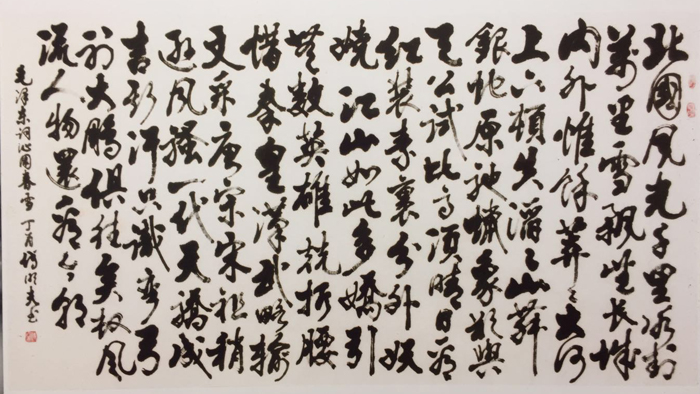 北國風光千里冰封
萬里雪飄望長城
内外惟餘莽々大河
上下頓失滔々山舞
銀蛇原馳蠟象欲與
天公試比高須晴日看
紅裝素裹分外妖
嬈江山如此多嬌引
無數英雄競折腰
惜秦皇漢武略輸
文采唐宗宋祖稍
遜風騷一代天驕成
吉思汗只識彎弓
射大鵰俱往矣数風
流人物還看今朝
毛澤東詞沁園春雪 丁酉